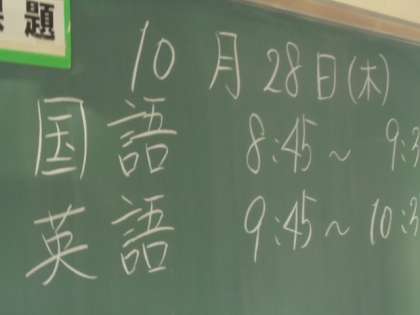 題
10月28日(木)
国語 8:45～ 9:3
英語 9:45～ 10:3